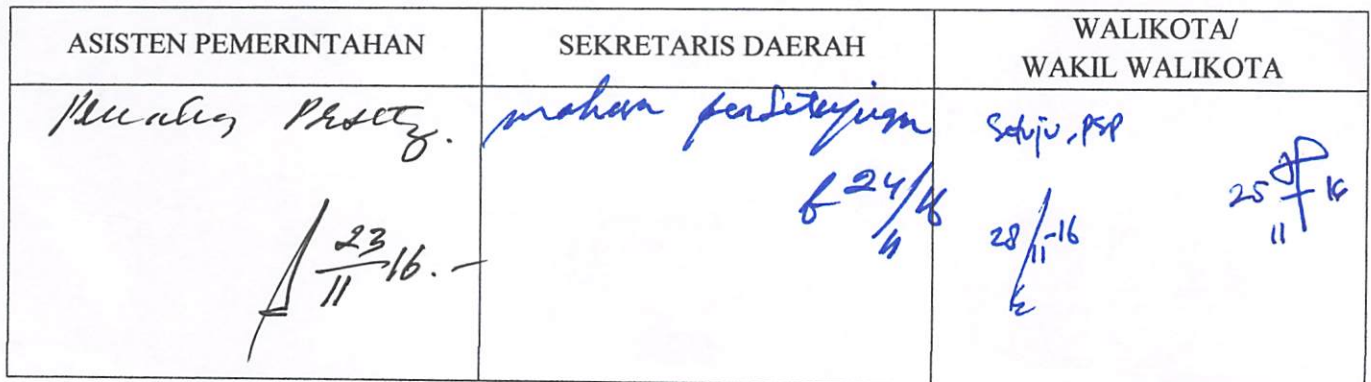 ASISTEN PEMERINTAHAN
SEKRETARIS DAERAH
WALIKOTA/
WAKIL WALIKOTA
mohon persetujuan
24/11 16
Setuju, PSP
25/11 16
28/11-16
23/11 16.-